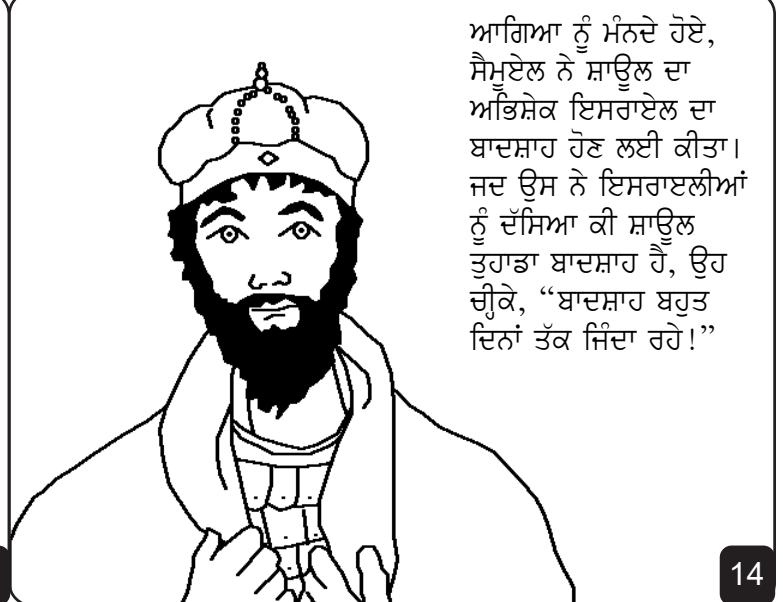 ਆਗਿਆ ਨੂੰ ਮੰਨਦੇ ਹੋਏ,
ਸੈਮੂਏਲ ਨੇ ਸ਼ਾਊਲ ਦਾ
ਅਭਿਸ਼ੇਕ ਇਸਰਾਏਲ ਦਾ
ਬਾਦਸ਼ਾਹ ਹੋਣ ਲਈ ਕੀਤਾ।
ਜਦ ਉਸ ਨੇ ਇਸਰਾਏਲੀਆਂ
ਨੂੰ ਦੱਸਿਆ ਕੀ ਸ਼ਾਊਲ
ਤੁਹਾਡਾ ਬਾਦਸ਼ਾਹ ਹੈ, ਉਹ
ਚੀਕੇ, “ਬਾਦਸ਼ਾਹ ਬਹੁਤ
ਦਿਨਾਂ ਤੱਕ ਜਿੰਦਾ ਰਹੇ!”
14